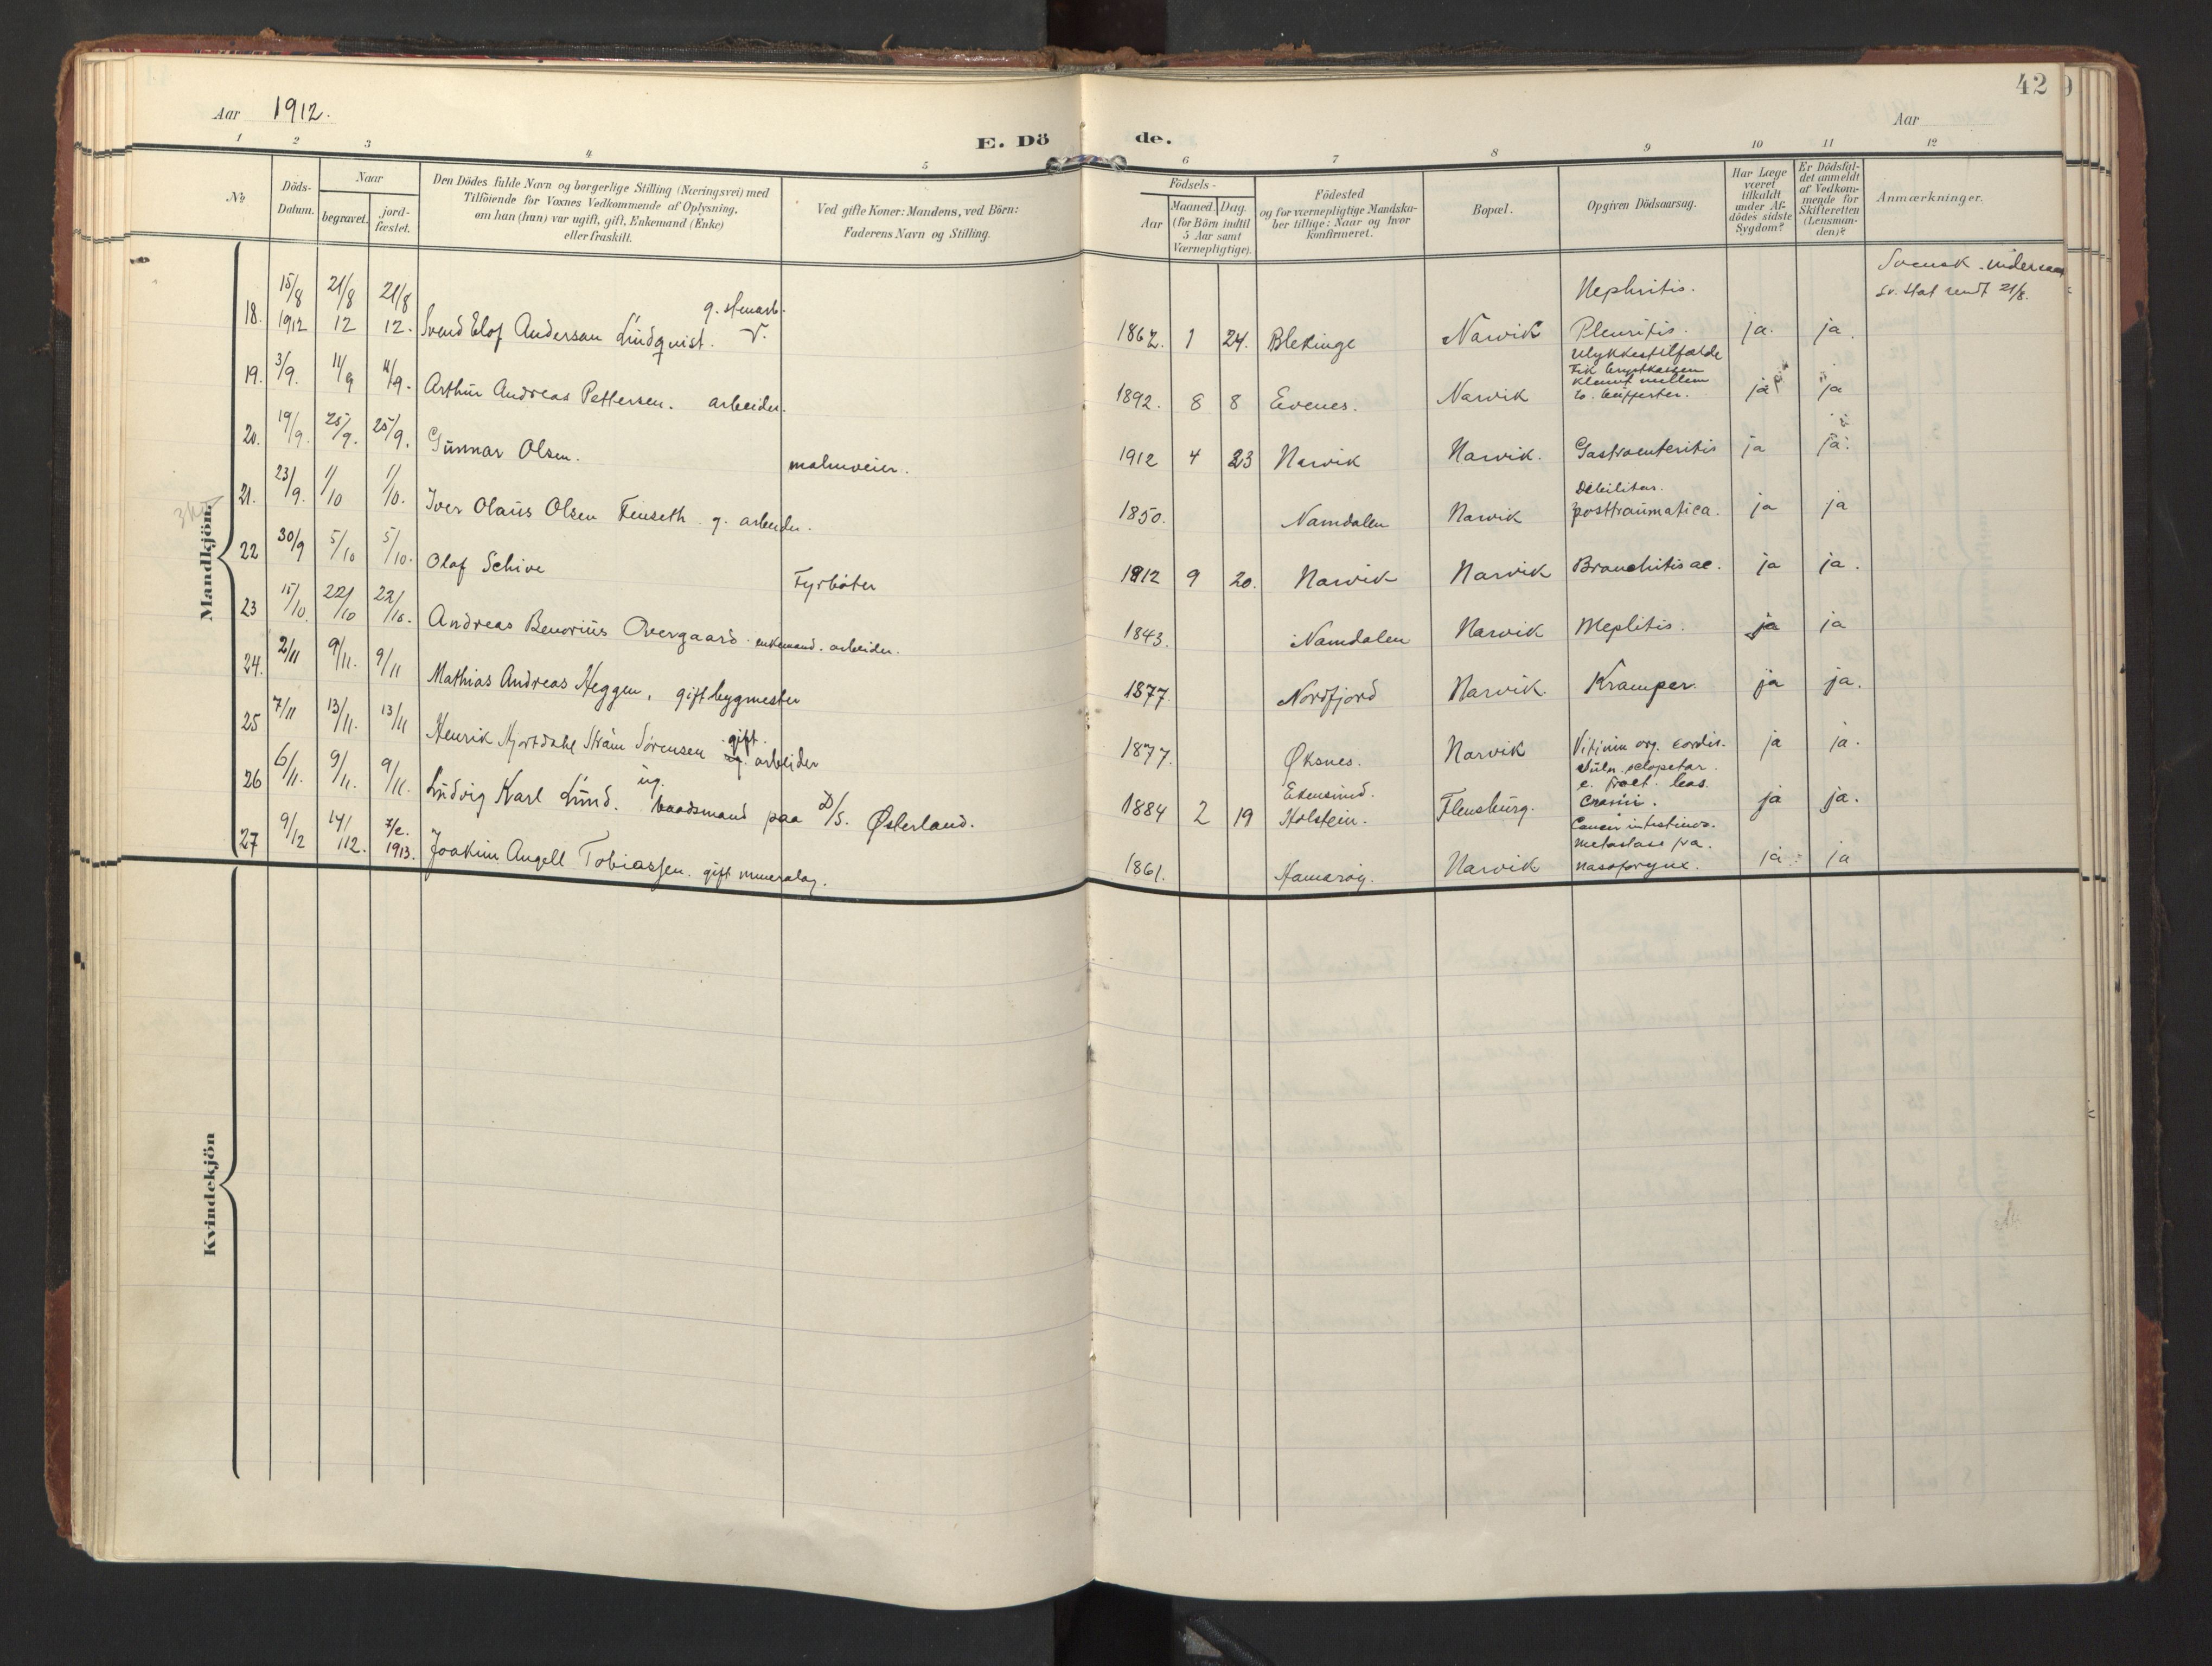 Aar 1912.
E. Dö de.
Aar
42
1 2 3 4 5 6 7 8 9 10 11 12
No
Döds-Datum.
Naar
begravet.
jord-fæstet.
Den Dödes fulde Navn og borgerlige Stilling (Næringsvei) med
Tilföiende for Voxnes Vedkommende af Oplysning,
om han (hun) var ugift, gift, Enkemand (Enke)
eller fraskilt.
Ved gifte Koner: Mandens, ved Börn:
Faderens Navn og Stilling.
Födsels-
Aar
Maaned. Dag.
(for Börn indtil
5 Aar samt
Værnepligtige).
Födested
og for værnepligtige Mandska-
ber tillige: Naar og hvor
konfirmeret.
Bopæl.
Opgiven Dödsaarsag.
Har Læge
været
tilkaldt
under Af-
dödes sidste
Sygdom?
Er Dödsfal-
det anmeldt
af Vedkom-
mende for
Skifteretten
(Lensman-
den)?
Anmærkninger.
Mandkjön
18. 15/8 1912 21/8 12 21/8 12. Svend Elof Anderson Lindquist. g. stenarb. 1862. 1 24. Blekinge Narvik Nephritis. Pleuritis. ja. ja. Svensk
21/8.
19. 3/9. 11/9 11/9. Arthur Andreas Pettersen. arbeider. 1892. 8 8 Evenes. Narvik Ulykkestilfælde
Fik brystkassen
klemt mellem
2. bufferter. ja ja
20. 19/9. 25/9. 25/9. Gunnar Olsen. malmveier. 1912 4 23 Narvik Narvik. Gastroenteritis ja ja.
21. 23/9. 1/10 1/10. Iver Olaus Olsen Finseth g. arbeider. 1850. Namdalen Narvik Debilitas.
posttraumatica. ja ja
22 30/9 5/10 5/10. Olaf Schive Fyrbøter 1912 9 20. Narvik Narvik Bronchitis ac. ja ja.
23 15/10. 22/10 22/10. Andreas Benorius Overgaard. enkemand. arbeider. 1843. Namdalen Narvik Nephitis. ja ja
24. 2/11 9/11. 9/11 Mathias Andreas Heggen, gift bygmester 1877. Nordfjord Narvik. Kramper. ja ja.
25 7/11 13/11. 13/11 Henrik Hjortdahl Strøm Sørensen gift. arbeider 1877. Øksnes. Narvik Vitium org. cordis. ja ja.
26 6/11. 9/11. 9/11. Ludvig Karl Lund. ug. baadsmand paa D/S. Østerland. 1884 2 19 Ekensund.
Holstein. Flensburg. Vuln. sclopetar.
c. fract. bas.
cranii. ja ja.
27 9/12 14/12. 7/2. 1913. Joakim Angell Tobiassen. gift 1861. Hamarøy. Narvik Cancer intestinor.
metastase fra.
nasopharynx. ja ja
Kvindekjön